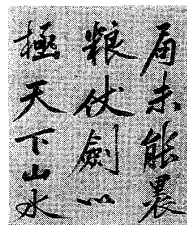 屆未能裹
粮伏劍以
極天下山水